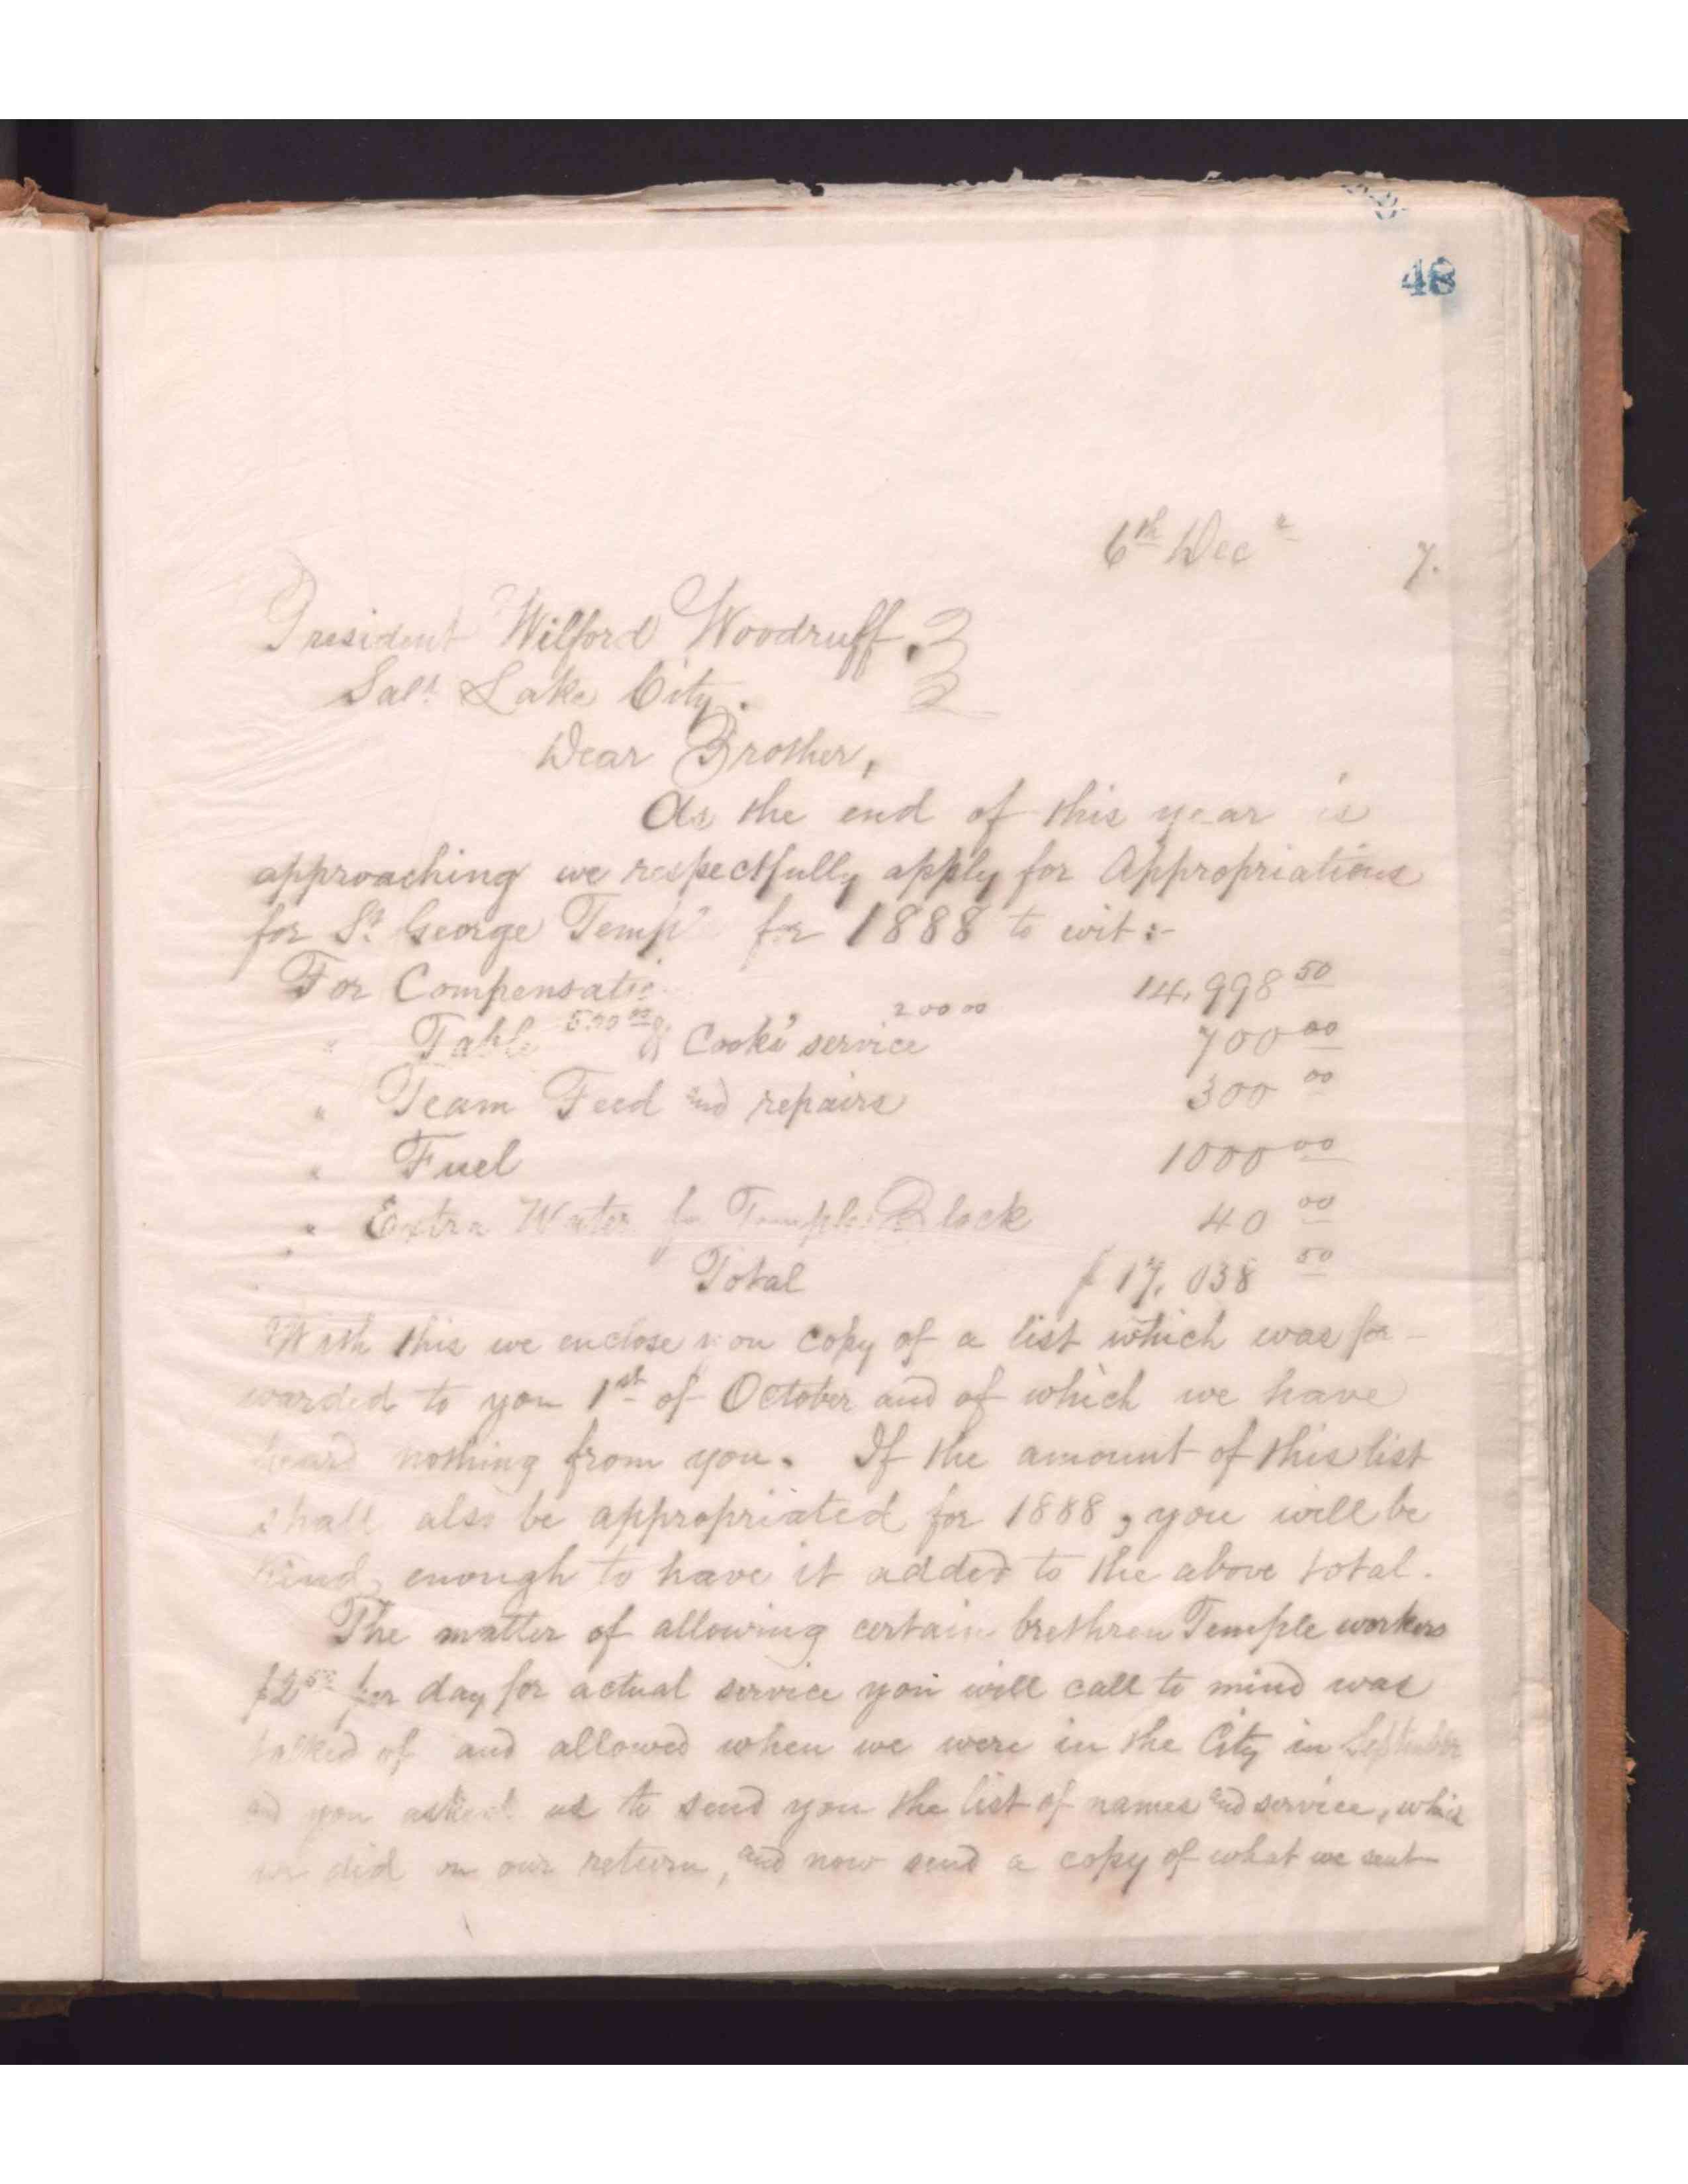 48
6th Decr 7.
President Wilford Woodruff.
Salt Lake City.
Dear Brother,
As the end of this year is
approaching we respectfully apply for Appropriations
for St. George Temple for 1888 to wit:-
For Compensatio 14,998 50
" Table 500 00 & Cooks' service 200 00 700 00
" Team Feed and repairs 300 00
" Fuel 1000 00
" Extra Water for Temple Block 40 00
Total $ 17,038 50
With this we enclose you copy of a list which was for-
warded to you 1st of October and of which we have
heard nothing from you. If the amount of this list
shall also be appropriated for 1888, you will be
kind enough to have it added to the above total.
The matter of allowing certain brethren Temple workers
$2 50 per day for actual service you will call to mind was
talked of and allowed when we were in the City in September
and you asked us to send you the list of names and service, which
we did on our return, and now send a copy of what we sent